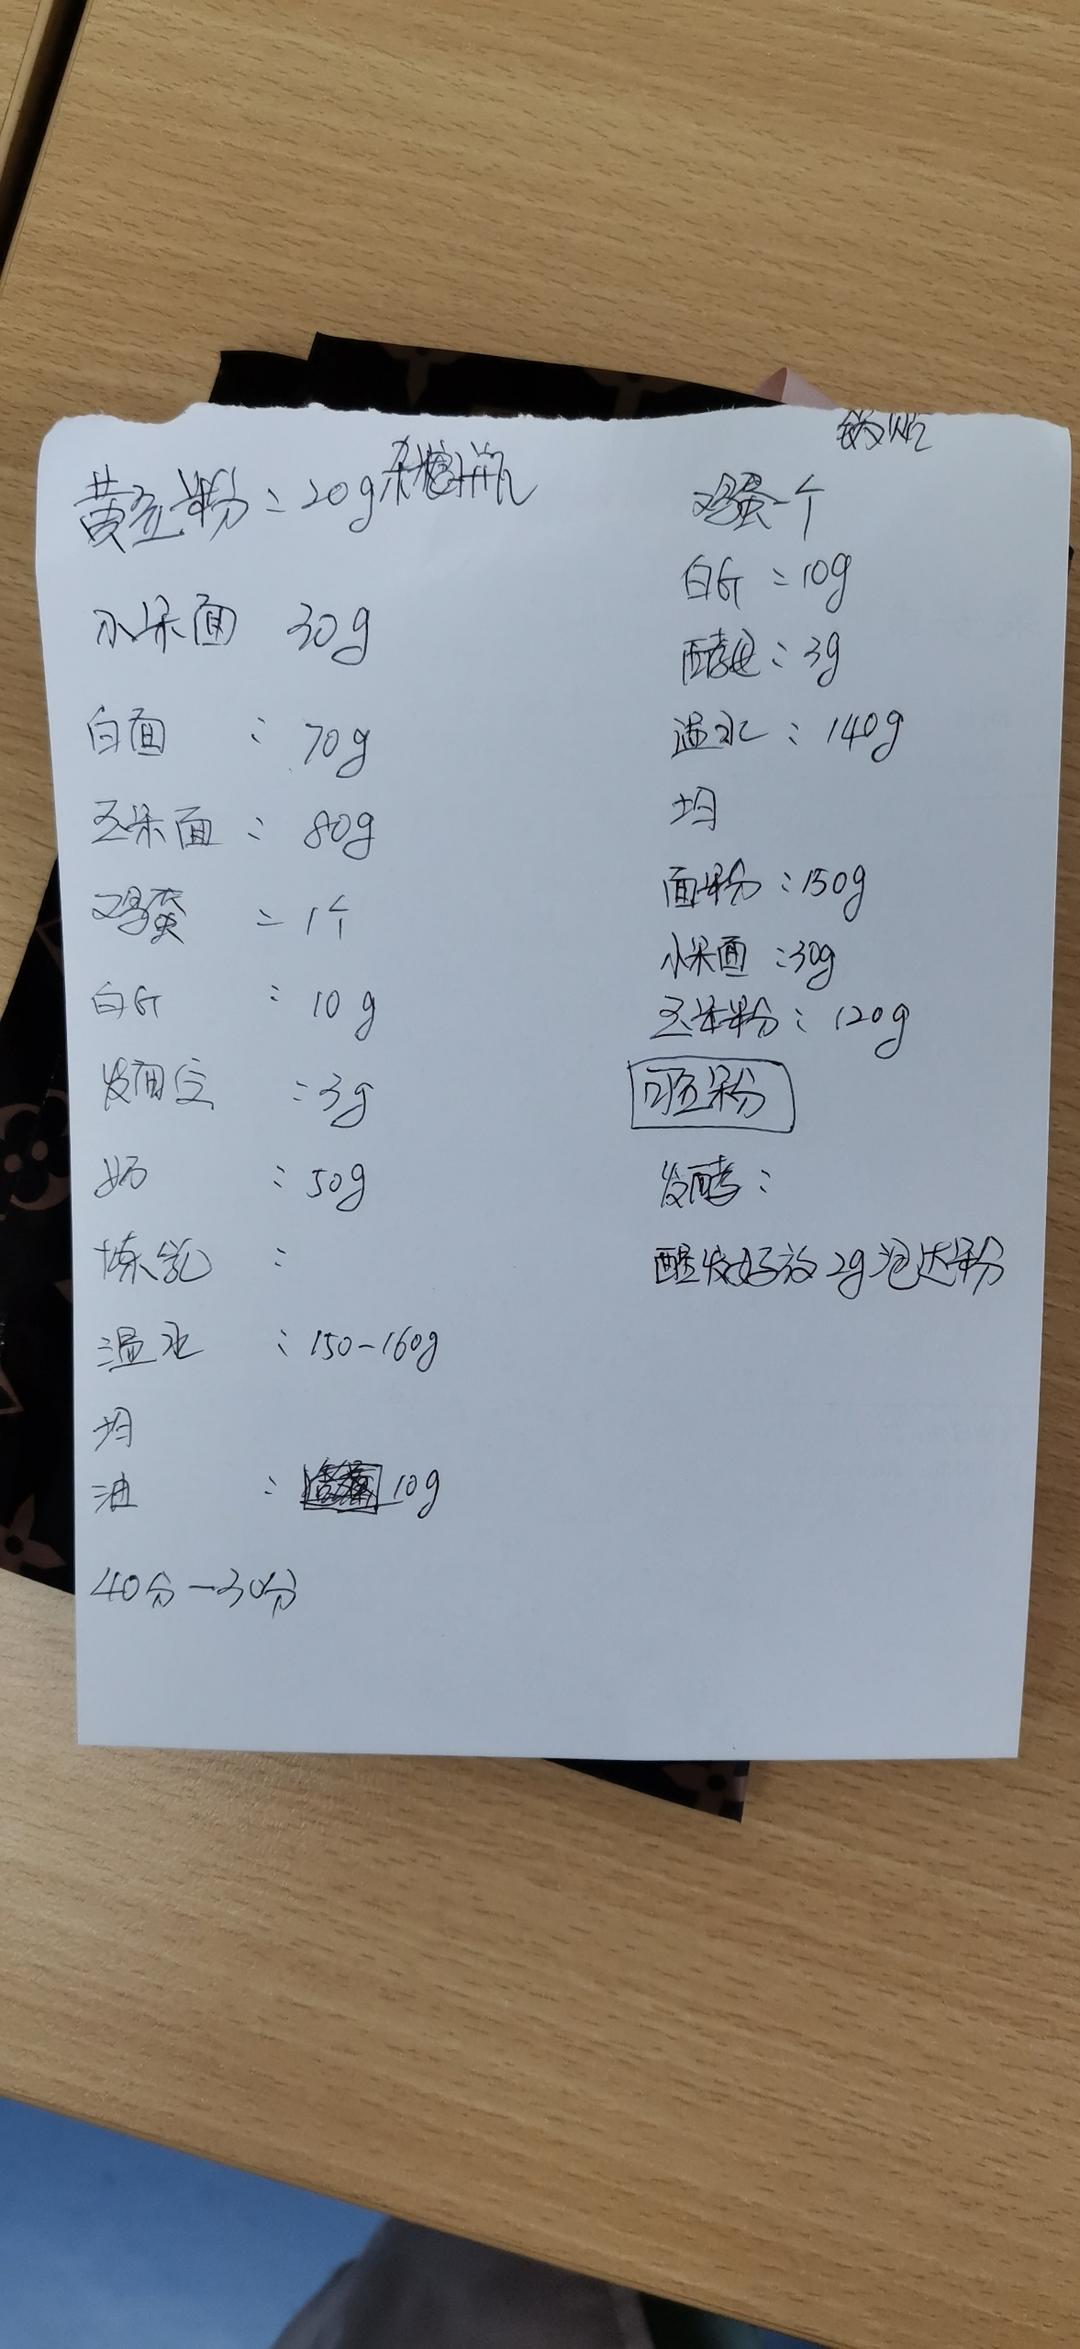 黄豆粉：20g
小米面 30g
白面：70g
玉米面：80g
鸡蛋：1个
白：10g
发面：3g
奶：50g
炼乳：
温水：150-160g
均
油：10g
40分-30分
鸡蛋一个
白：10g
酵母：3g
温水：140g
均
面粉：150g
小米面：30g
玉米粉：120g
豆粉
发酵：
醒发好放2g泡达粉